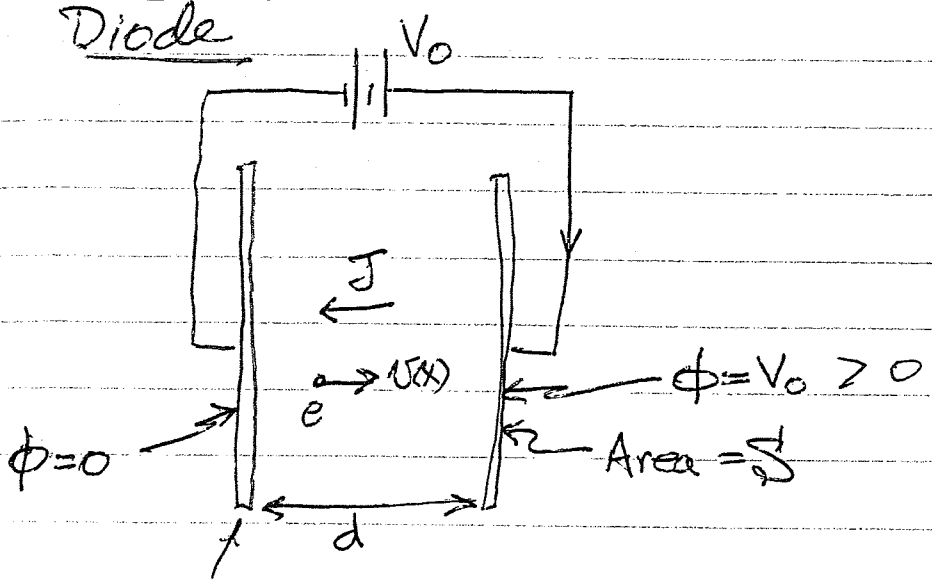 Diode
V₀
J
e
v(x)
ϕ=V₀ > 0
ϕ=0
Area = S
d